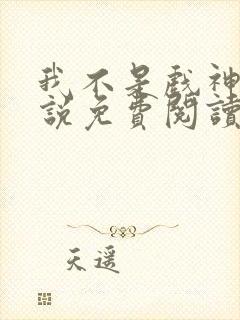 我不是戲神
說免費閱讀
天遥